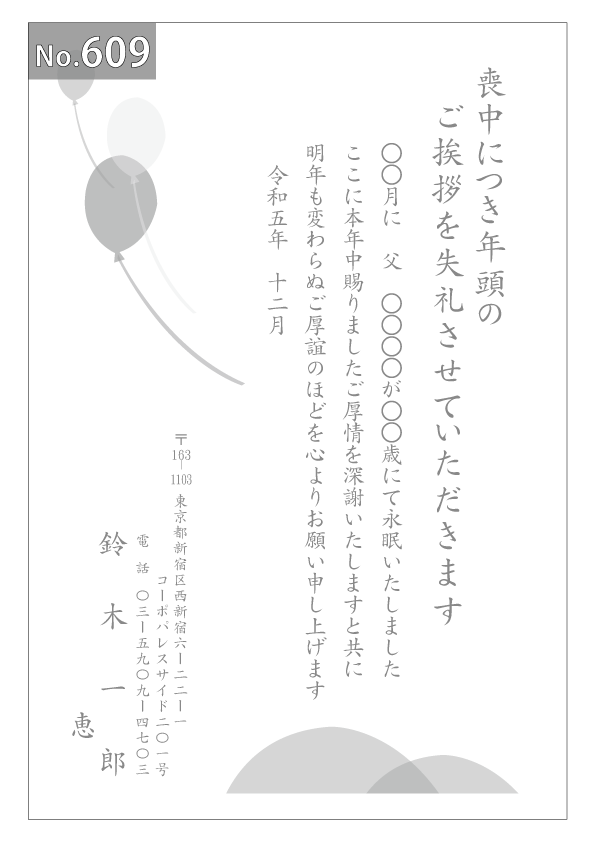 No.609
喪中につき年頭の
ご挨拶を失礼させていただきます
〇〇月に　父　〇〇〇〇が〇〇歳にて永眠いたしました
ここに本年中賜りましたご厚情を深謝いたしますと共に
明年も変わらぬご厚誼のほどを心よりお願い申し上げます
令和五年　十二月
〒163-1103 東京都新宿区西新宿六ー二二ー一
コーポパレスサイド二〇一号
電　話　〇三ー五九〇九ー四七〇三
鈴木一郎
恵